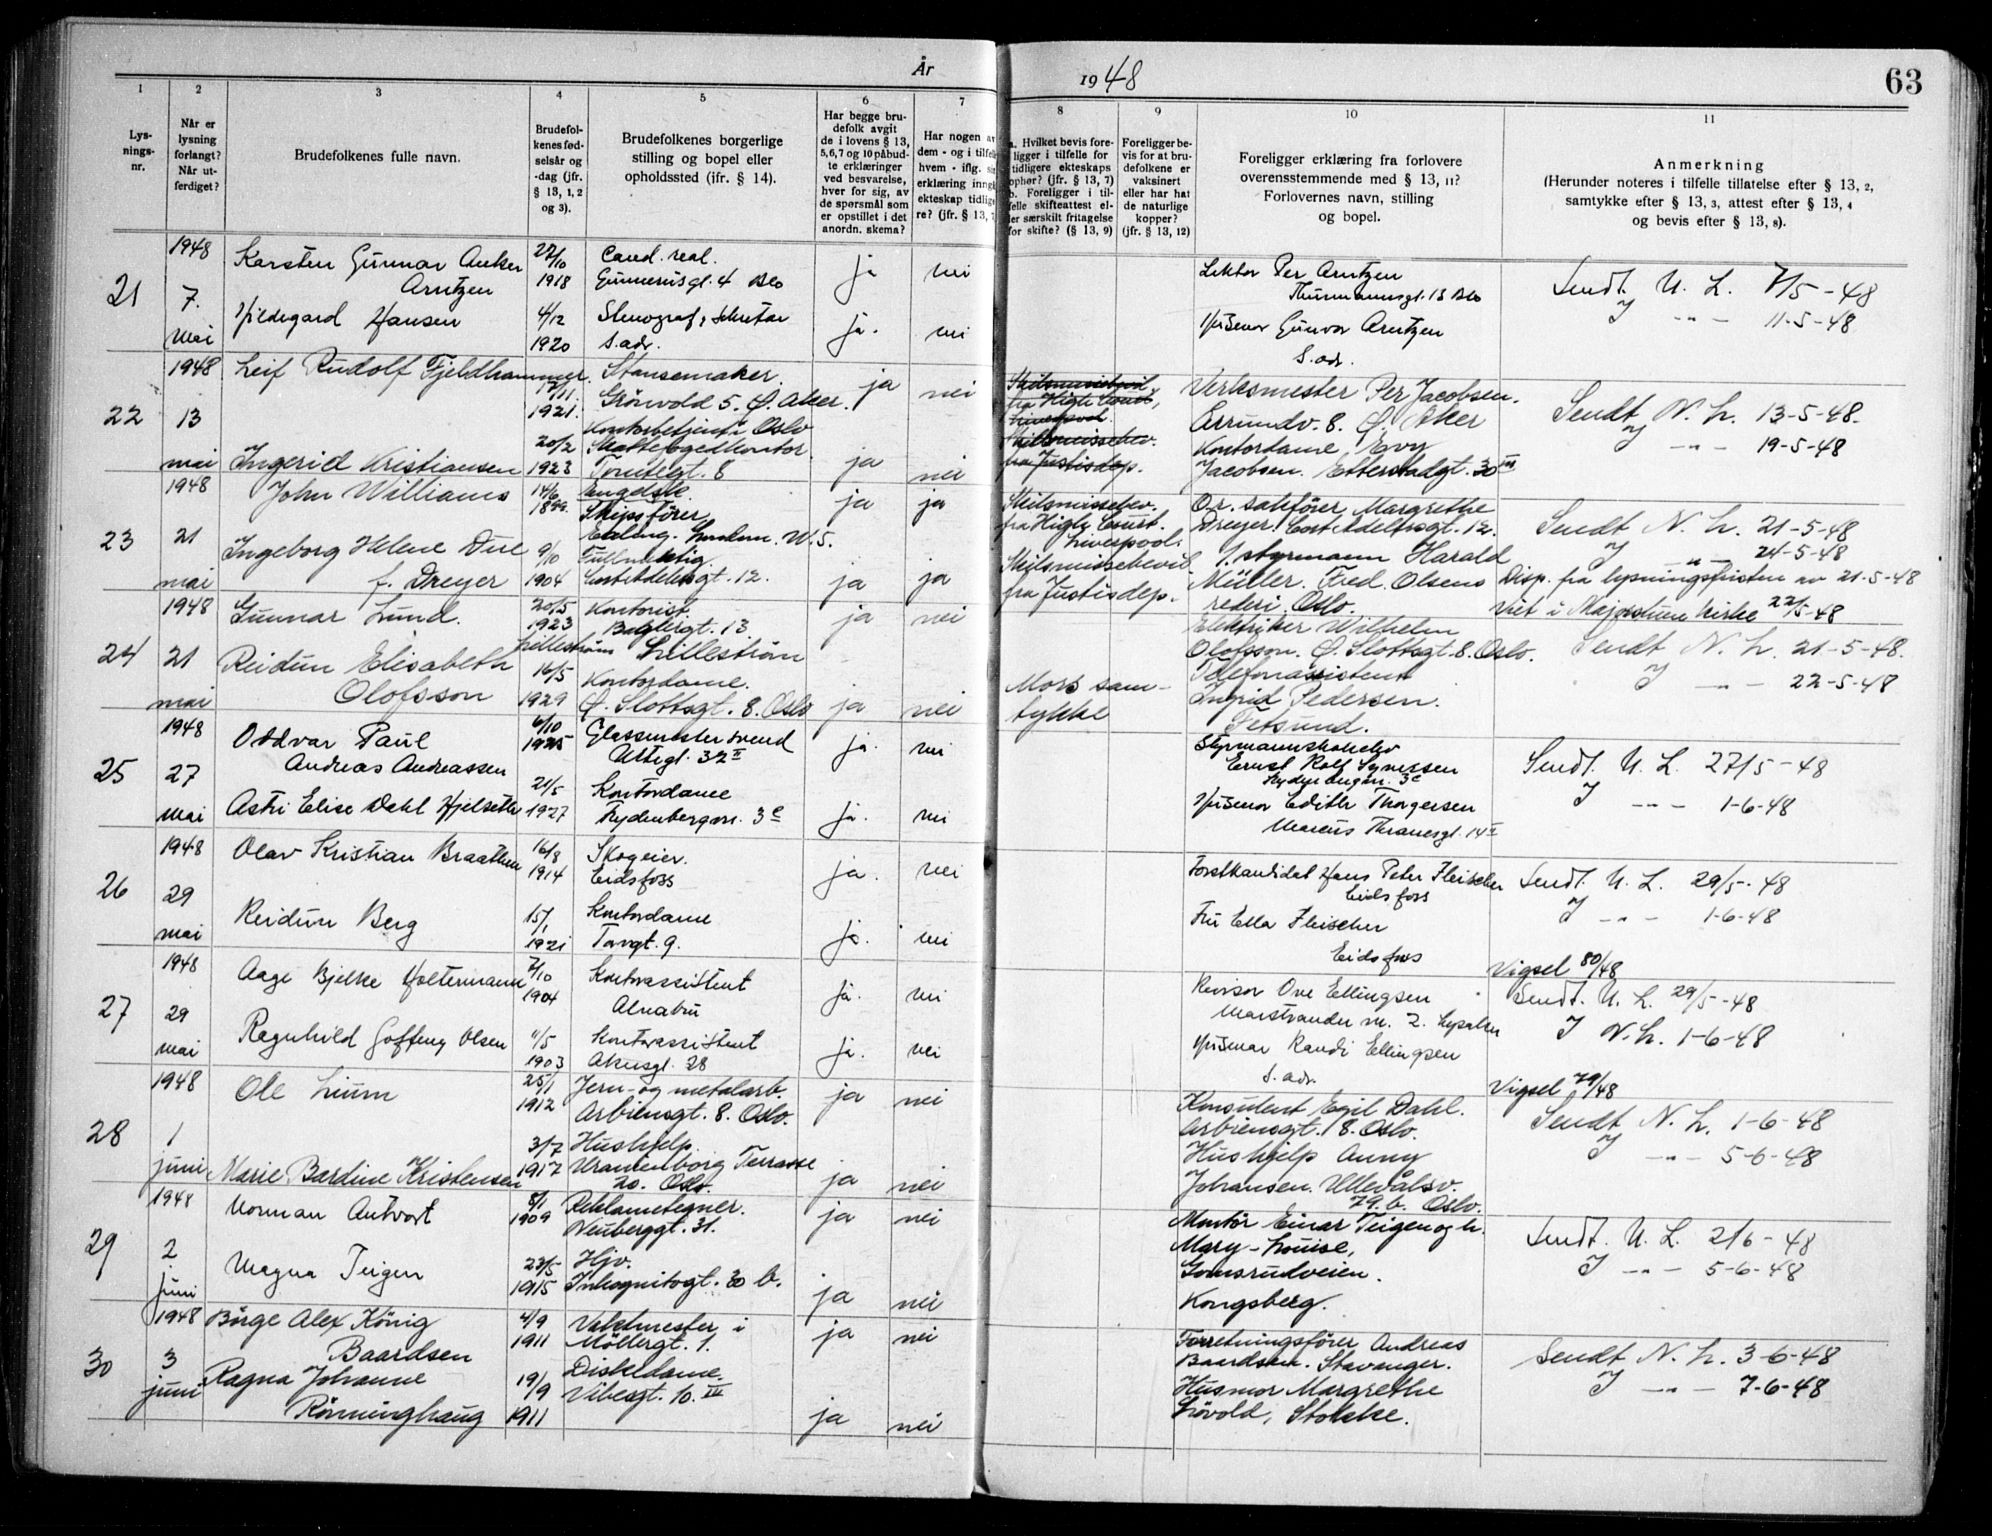 År
1948
63
1
2
3
4
5
6
7
8
9
10
11
Lys-
nings-
nr.
Når er
lysning
forlangt?
Når ut-
ferdiget?
Brudefolkenes fulle navn.
Brudefol-
kenes fød-
selsår og
-dag (jfr.
§ 13, 1, 2
og 3).
Brudefolkenes borgerlige
stilling og bopel eller
opholdssted (ifr. § 14).
Har begge bru-
defolk avgit
de i lovens § 13,
5,6,7 og 10 påbud-
te erklæringer
ved besvarelse,
hver for sig, av
de spørsmål som
er opstillet i det
anordn. skema?
Har nogen av
dem - og i tilfelle
hvem - iflg. sin
erklæring inngå
ekteskap tidlige
re? (jfr. § 13, 7
a. Hvilket bevis fore-
ligger i tilfelle for
tidligere ekteskaps
ophør? (jfr. § 13, 7)
b. Foreligger i til-
felle skifteattest el-
ler særskilt fritagelse
for skifte? (§ 13, 9)
Foreligger be-
vis for at bru-
defolkene er
vaksinert
eller har hat
de naturlige
kopper?
(jfr. § 13, 12)
Foreligger erklæring fra forlovere
overensstemmende med § 13, 11?
Forlovernes navn, stilling
og bopel.
Anmerkning
(Herunder noteres i tilfelle tillatelse efter § 13, 2,
samtykke efter § 13, 3, attest efter § 13, 4
og bevis efter § 13, 8).
21
1948
7.
mai
Karsten Gunnar Anker
Arntzen
27/10
1918
Cand. real.
Gunnerusgt. 4 Oslo
ja
nei
Lektor Per Arntzen
Thurmannsgt. 13 Oslo
Sendt U. L. 7/5-48
Hildegard Hansen
4/12
1920
Stenograf, sekretær
s. adr.
ja.
nei
Husmor Gunvor Arntzen
s. adr.
J -"- 11-5-48
22
1948
13
mai
Leif Rudolf Fjeldhammer.
17/11.
1921.
Stansemaker.
Grönvold 5. Ø. Aker.
ja
nei
Skilsmissebevil.
fra High Court,
Liverpool.
Skilsmissebev.
fra Justisdep.
Verksmester Per Jacobsen.
8. Ø. Aker
Sendt N. L. 13-5-48.
Ingerid Kristiansen
20/2
1923
Kontorbetjent Oslo
Skattefogedkontor.
8
ja
nei
Kontordame Evy
Jacobsen. Etterstadgt. 30 III
J -"- 19-5-48
23
1948
21
mai
John Williams
14/6
1899.
Engelsk.
Skipsförer
Ealing. London. W. 5.
ja
ja
Skilsmissebev.
fra High Court.
Liverpool.
O.r. sakförer Margrethe
Dreyer. Cort Adelersgt. 12.
Sendt N. L. 21-5-48
J -"- 24-5-48
Ingeborg Helene Due
f. Dreyer
9/10
1904
Fullmektig.
Cort Adelersgt. 12.
ja
ja
Skilsmissebevil
fra Justisdep.
1. styrmann Harald
Müller. Fred. Olsens
rederi. Oslo.
Disp. fra lysningsfristen av 21-5-48
Viet i Majorstuen kirke 22/5-48
24
1948
21
mai
Gunnar Lund.
20/5
1923
Kontorist
Baglergt. 13
Lilleström
ja
nei
Elektriker Wilhelm
Olofsson. Ø. Slottsgt. 8. Oslo.
Sendt N. L. 21-5-48.
Reidun Elisabeth
Olofsson
16/5
1929
Kontordame.
Ø. Slottsgt. 8. Oslo
ja
nei
Mors sam-
tykke
Telefonassistent
Ingrid Pedersen.
Fetsund.
J -"- 22-5-48
25
1948
27
mai
Oddvar Paul
Andreas Andreassen
6/10
1925
Glassmestersvend
32 II
ja.
nei
Styrmannskoleelev
Ernst Rolf Synessen
Rydenbergvn. 3c
Sendt. U. L. 27/5-48
Astri Elise Dahl Hjelseth
21/5
1927
Kontordame
Rydenbergvn. 3c
ja.
nei
Husmor Edith Thorgersen
Marcus Thranesgt. 14 II
J -"- 1-6-48
26
1948
29
mai
Olav Kristian Braathen
16/8
1914
Skogeier.
Eidsfoss
ja.
nei
Forstkandidat Hans Peter Fleischer
Eidsfoss
Sendt. U. L. 29/5-48
Reidun Berg
15/1
1921
Kontordame
Torvgt. 9.
ja.
nei
Fru Ella Fleischer
Eidsfoss
J -"- 1-6-48
Vigsel 80/48
27
1948
29
mai
Aage Bjelke Holtermann
7/10
1904
Kontorassistent
Alnabru
ja.
nei
Revisor Ove Ellingsen
Marstrander vn. 2. Lysaker
Sendt. U. L. 29/5-48
Ragnhild Goffeng Olsen
11/5
1903
Kontorassistent
Akersgt. 28
ja.
nei
Husmor Randi Ellingsen
s. adr.
J N. L. 1-6-48
Vigsel 79/48
28
1948
1
juni
Ole Lium
25/1
1912
Jern- og metalarb.
Arbiensgt. 8. Oslo.
ja
nei
Konsulent Egil Dahl.
Arbiensgt. 8. Oslo.
Sendt N. L. 1-6-48
Marie Bardine Kristensen
3/7
1917
Hushjelp
Uranienborg Terrasse
20. Oslo.
ja
nei
Hushjelp Anny
Johansen. Ullevålsv.
79. b. Oslo.
J -"- 5-6-48
29
1948
2
juni
Norman Antvort
8/1
1909
Reklametegner.
Neuberggt. 31.
ja
nei
Montör Einar Teigen og h.
Mary-Louise,
Gomsrudveien.
Kongsberg.
Sendt. U. L. 2/6-48
Magna Teigen
23/5
1915
Hjv.
Inkognitogt. 30 b.
ja
nei
J -"- 5-6-48
30
1948
3
juni
Börge Alex König
Baardsen
4/9
1911
Vaktmester i
Möllergt. 1.
ja
nei
Forretningsförer Andreas
Baardsen. Stavanger.
Sendt N. L. 3-6-48
Ragna Johanne
Rönninghaug
19/9
1911
Diskedame.
Vibesgt. 10. III
ja
nei
Husmor Margrethe
Lövold, Stokke.
J -"- 7-6-48